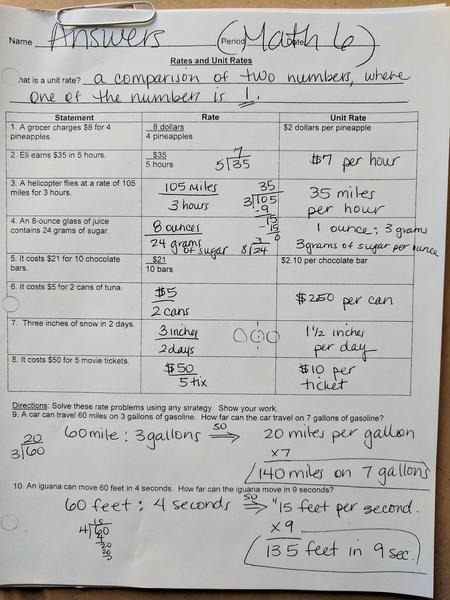 Name Answers Period (Math 6) Date
Rates and Unit Rates
hat is a unit rate? a comparison of two numbers, where
one of the numbers is 1.
Statement Rate Unit Rate
1. A grocer charges $8 for 4 pineapples.
8 dollars
4 pineapples
$2 dollars per pineapple
2. Eli earns $35 in 5 hours.
$35
5 hours
7
5)35
$7 per hour
3. A helicopter flies at a rate of 105 miles for 3 hours.
105 miles
3 hours
35
3)105
-9
15
-15
0
35 miles
per hour
4. An 8-ounce glass of juice contains 24 grams of sugar.
8 ounces
24 grams
of sugar
3
8)24
1 ounce : 3 grams
3 grams of sugar per ounce
5. It costs $21 for 10 chocolate bars.
$21
10 bars
$2.10 per chocolate bar
6. It costs $5 for 2 cans of tuna.
$5
2 cans
$2.50 per can
7. Three inches of snow in 2 days.
3 inches
2 days
1 1/2 inches
per day
8. It costs $50 for 5 movie tickets.
$50
5 tix
$10 per
ticket
Directions: Solve these rate problems using any strategy. Show your work.
9. A car can travel 60 miles on 3 gallons of gasoline. How far can the car travel on 7 gallons of gasoline?
20
3)60
60 mile : 3 gallons SO ⇒ 20 miles per gallon
x7
140 miles on 7 gallons
10. An iguana can move 60 feet in 4 seconds. How far can the iguana move in 9 seconds?
60 feet : 4 seconds SO ⇒ 15 feet per second.
15
4)60
4
20
20
x 9
135 feet in 9 sec.